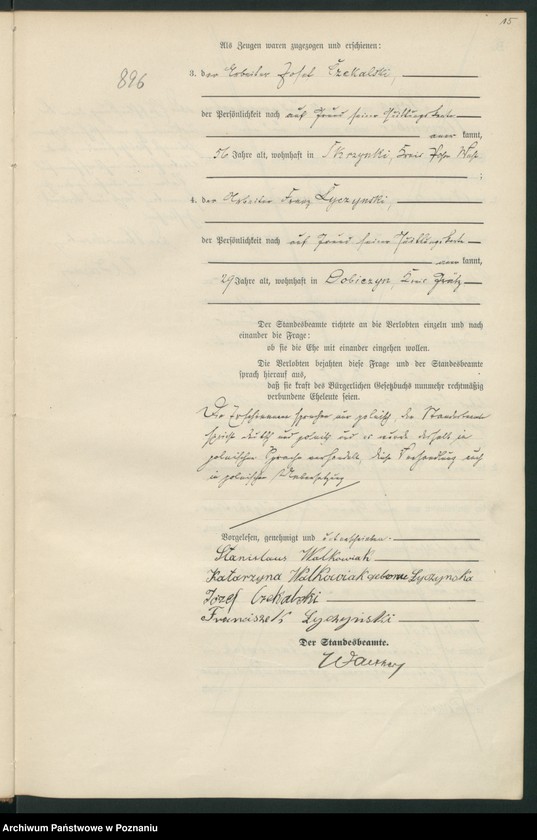 15
Als Zeugen waren zugezogen und erschienen:
896
3. der Arbeiter Josef Czekalski,
der Persönlichkeit nach auf Grund seiner Quittungskarte
aner kannt,
56 Jahre alt, wohnhaft in Skrzynki, Kreis Posen West
;
4. der Arbeiter Franz Łyczynski,
der Persönlichkeit nach auf Grund seiner Quittungskarte
aner kannt,
29 Jahre alt, wohnhaft in Dobiezyn, Kreis Grätz
Der Standesbeamte richtete an die Verlobten einzeln und nach
einander die Frage:
ob sie die Ehe mit einander eingehen wollen.
Die Verlobten bejahten diese Frage und der Standesbeamte
sprach hierauf aus,
daß sie kraft des Bürgerlichen Gesetzbuchs nunmehr rechtmäßig
verbundene Eheleute seien.
Die Erschienenen sprechen nur polnisch, der Standesbeamte
spricht deutsch und polnisch und es wurde deshalb in
polnischer Sprache verhandelt, diese Verhandlung auch
in polnischer Uebersetzung
Vorgelesen, genehmigt und unterschrieben.
Stanislaus Walkowiak
Katarzyna Walkowiak geborne Łyczynska
Józef Czekalski
Franciszek Łyczyński
Der Standesbeamte.
Archiwum Państwowe w Poznaniu